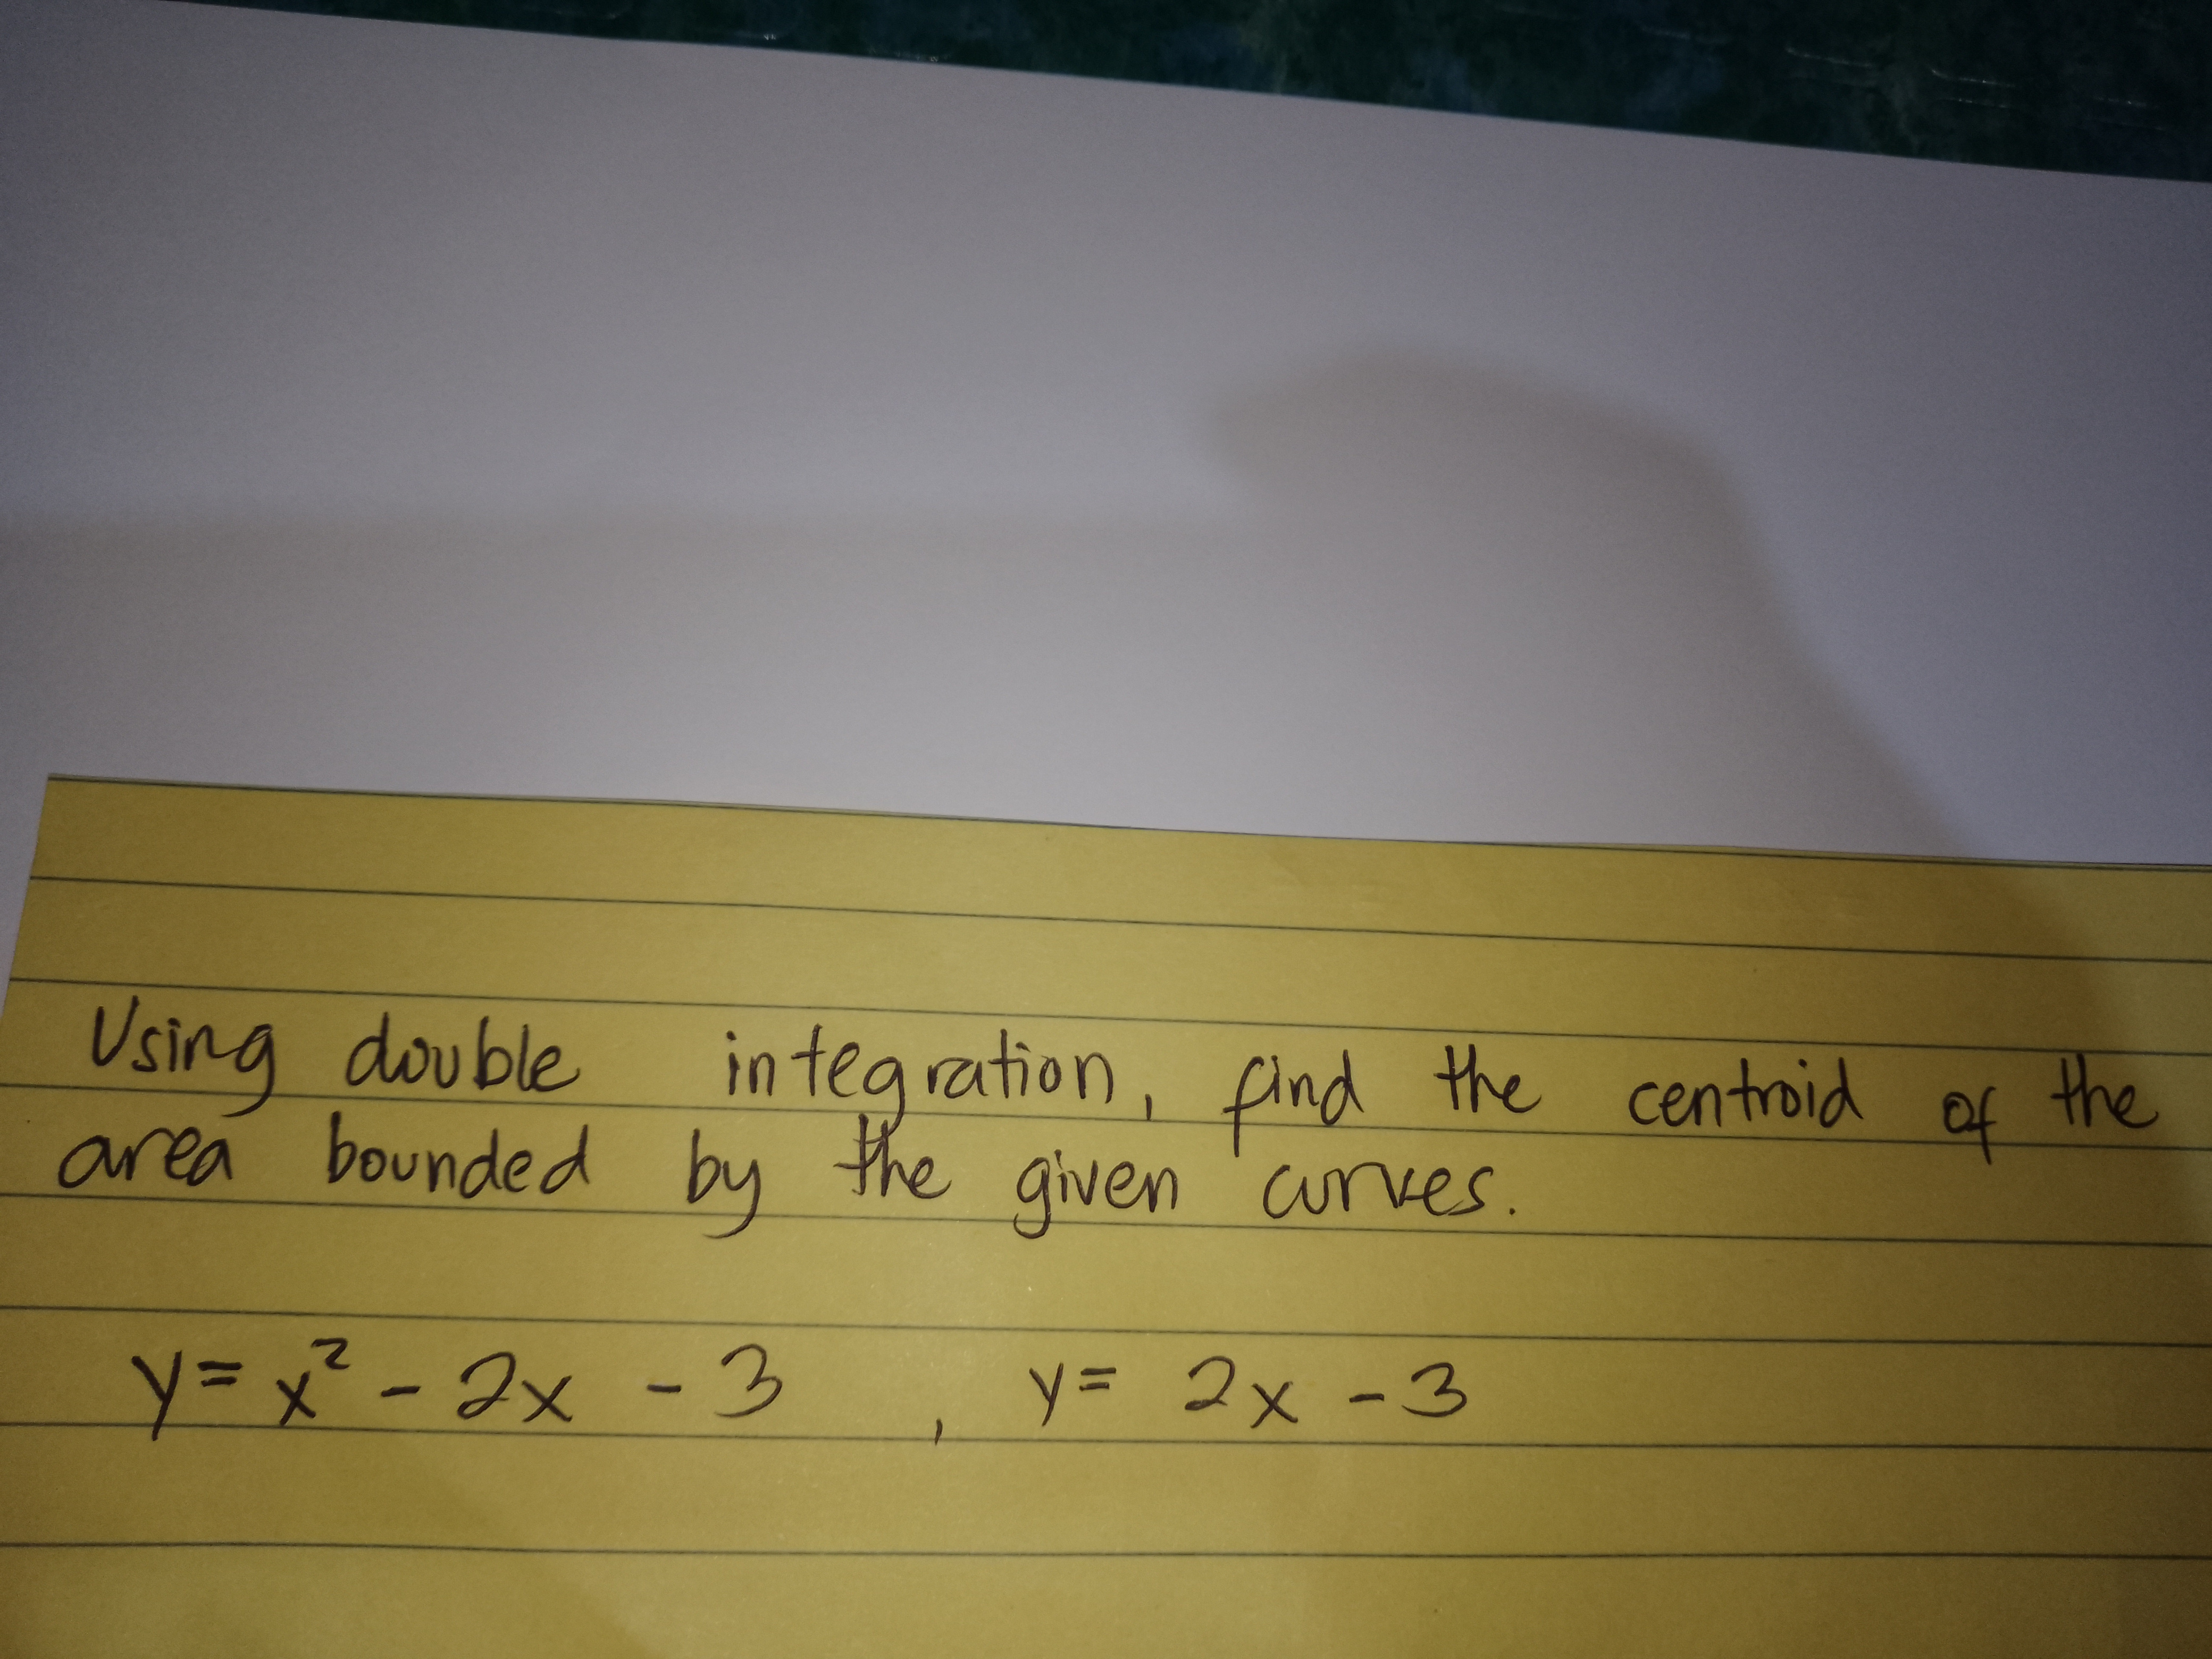 Using double integration, find the centroid of the
area bounded by the given curves.
y = x² - 2x - 3 , y = 2x - 3